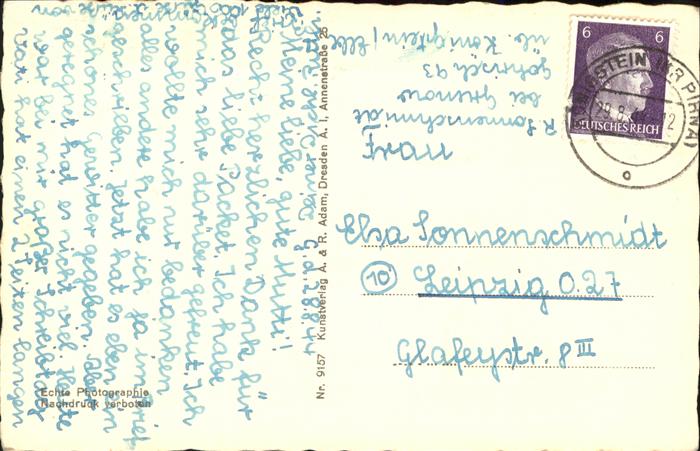 G., 28.8.44
Meine liebe, gute Mutti!
Recht herzlichen Dank für
das liebe Packet. Ich habe
mich sehr darüber gefreut. Ich
wollte mich nur bedanken
alles andere habe ich ja im Brief
geschrieben. Jetzt hat es eben ein
schönes Gewitter gegeben. Aber
geregnet hat es nicht viel. Heute
war bei mir großer Schreibtag
Vati hat einen 2 Seiten langen
Echte Photographie
Nachdruck verboten
Nr. 9157 Kunstverlag A. & R. Adam, Dresden A. 1, Annenstraße 26
R. Sonnenschmidt
bei Grenow
Gohrisch 93
üb. Königstein/Elbe
6 6
DEUTSCHES REICH
Frau
Elsa Sonnenschmidt
10 Leipzig O.27
Glafeystr. 8 III